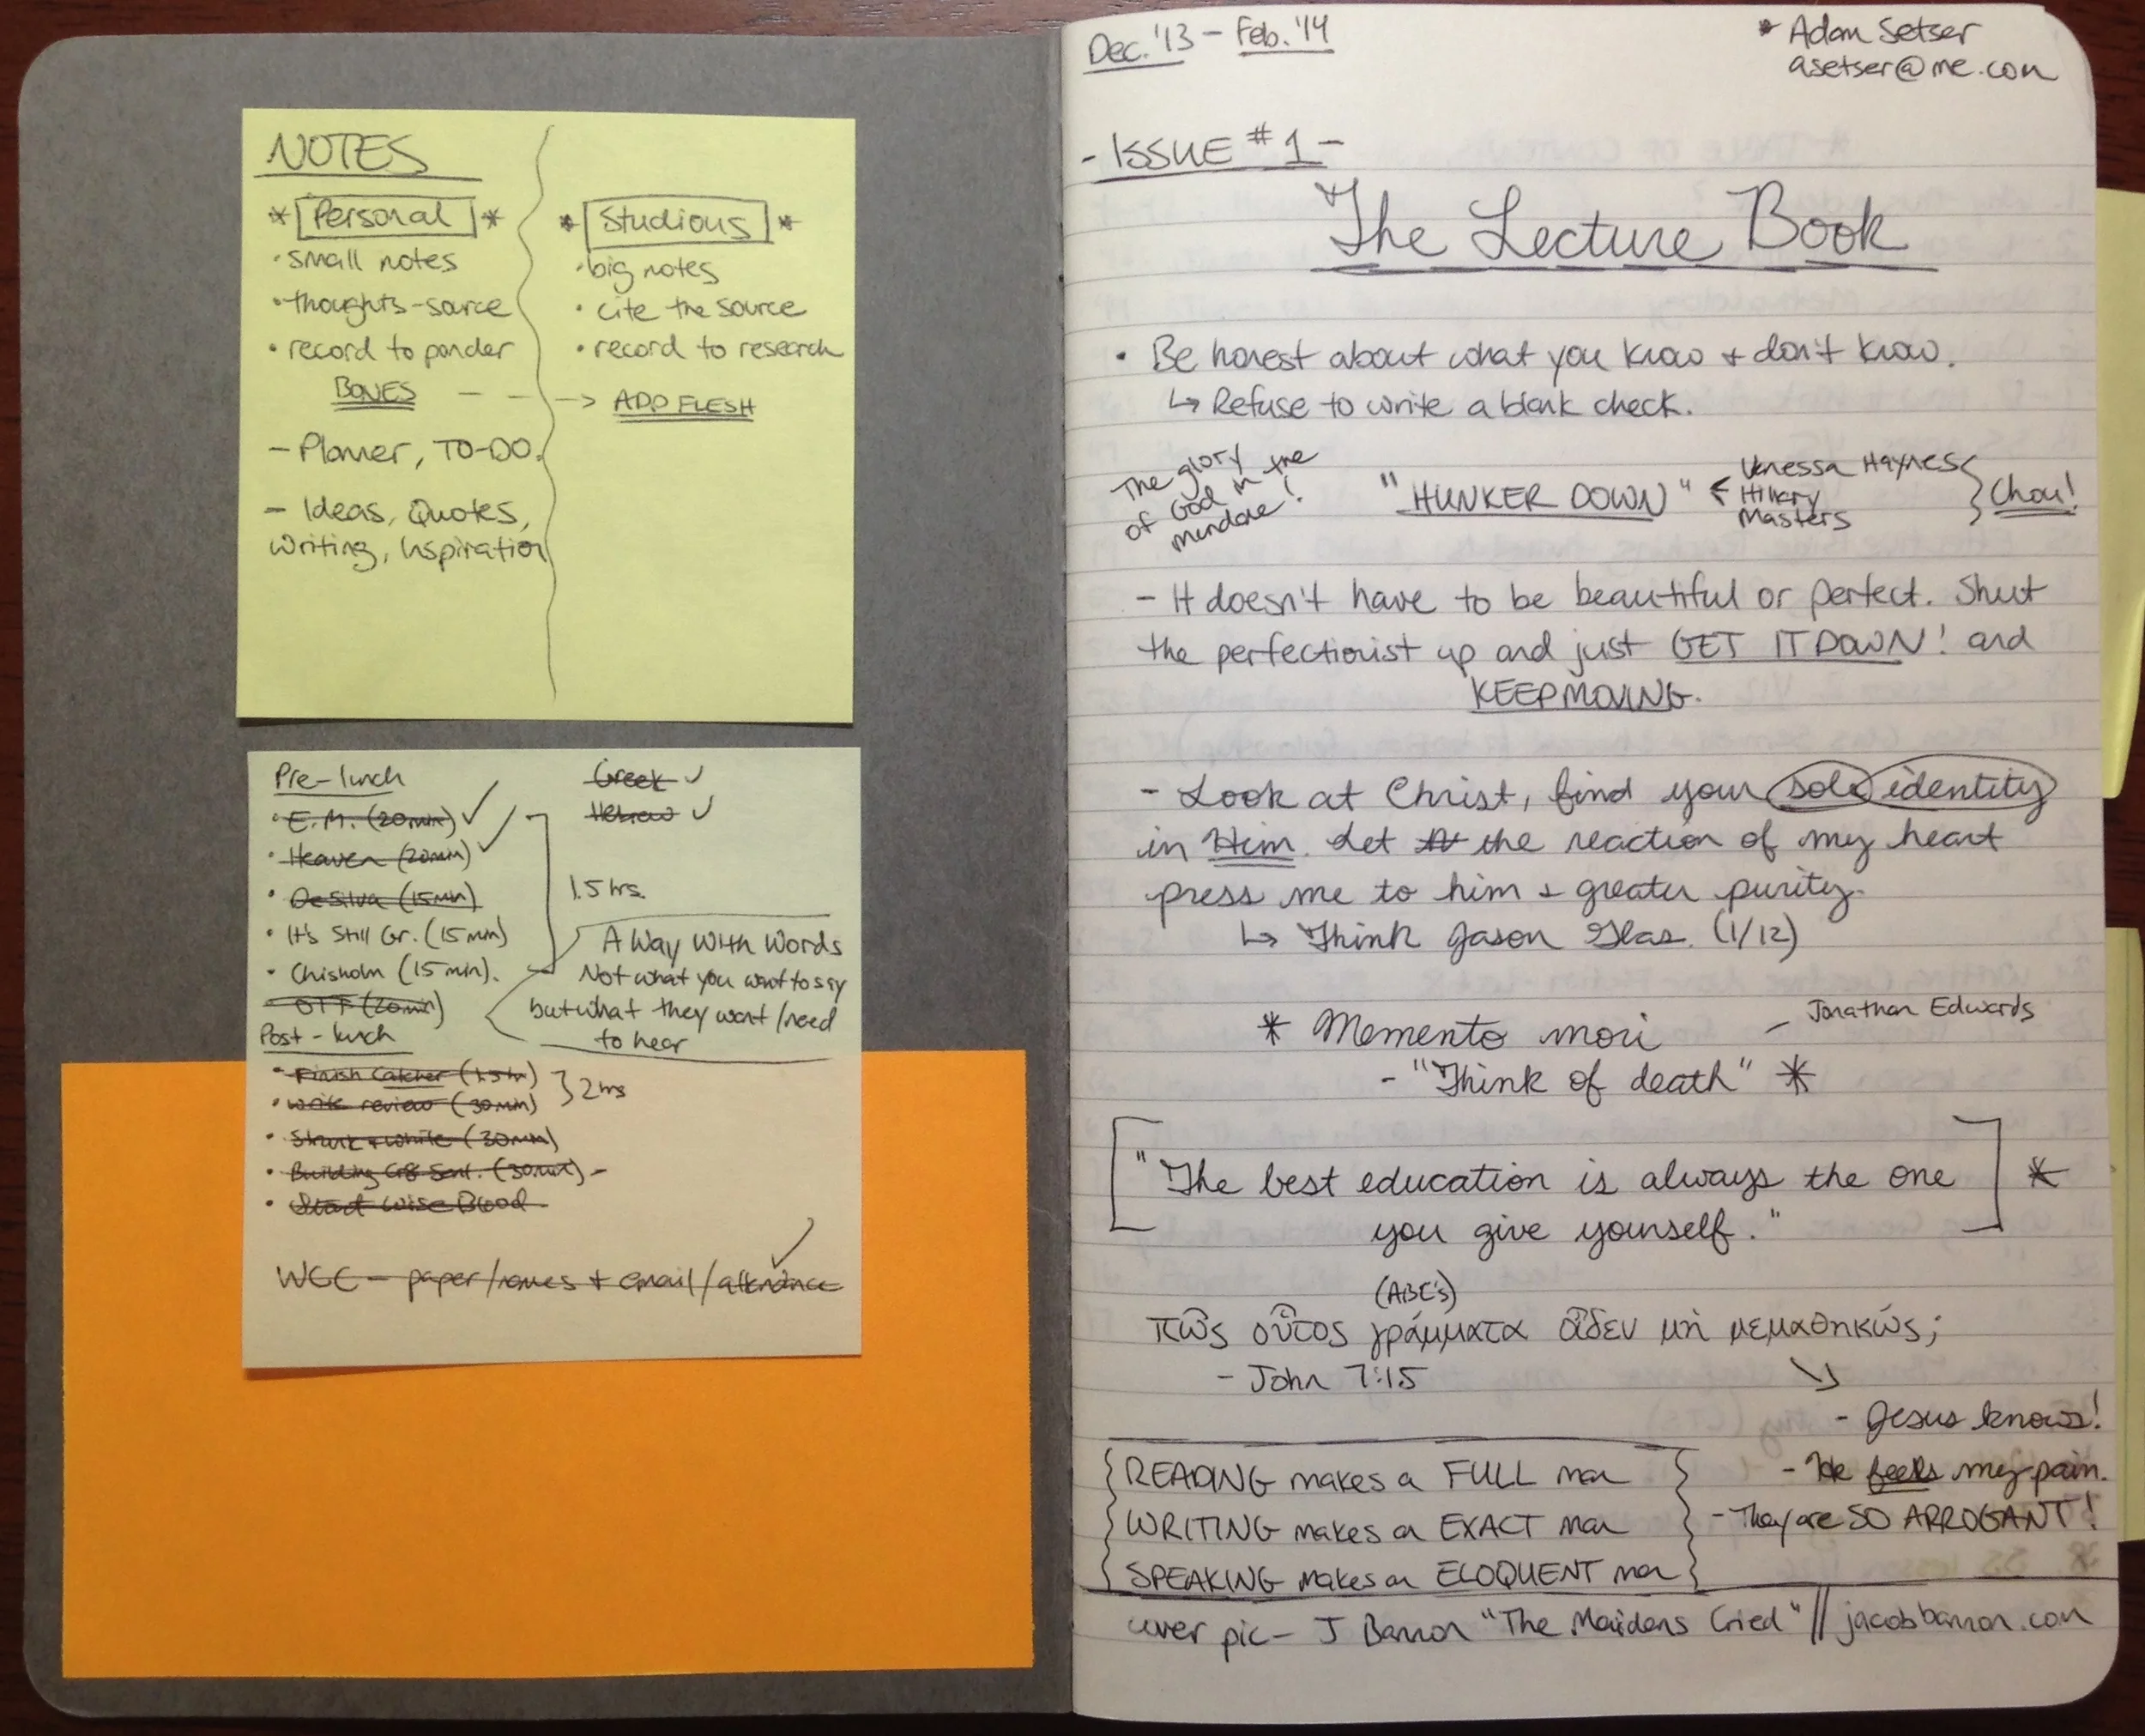 NOTES
* Personal *
· small notes
· thoughts-source
· record to ponder
BONES - - ->
- Planner, TO-DO.
- Ideas, Quotes,
Writing, Inspiration
* Studious *
· big notes
· cite the source
· record to research
ADD FLESH
Pre-lunch
· E.M. (20min) ✓
· Heaven (20min) ✓
· DeSilva (15min)
· It's Still Gr. (15 min)
· Chisholm (15 min).
OTF (20min)
Greek ✓
Hebrew ✓
1.5 hrs.
A Way With Words
Not what you want to say
but what they want/need
to hear
Post-lunch
· Finish Catcher (1.5hr)
· write review (30min)
} 2 hrs
· Strunk + White (30min)
· Building Gr8 Sent. (30min) -
· Start Wise Blood
WCC - paper/names + email/attendance ✓
Dec. '13 - Feb. '14
* Adam Setser
asetser@me.com
- ISSUE #1 -
The Lecture Book
· Be honest about what you know + don't know.
↳ Refuse to write a blank check.
The glory
of God in the
mundane!
"HUNKER DOWN" <
Vanessa Haynes
Hillary
Masters
} Chou!
- It doesn't have to be beautiful or perfect. Shut
the perfectionist up and just GET IT DOWN! and
KEEP MOVING.
- Look at Christ, find your sole identity
in Him. Let the reaction of my heart
press me to him + greater purity.
↳ Think Jason Glas. (1/12)
* Memento mori - Jonathan Edwards
- "Think of death" *
["The best education is always the one
you give yourself."] *
(ABC's)
πῶς οὗτος γράμματα οἶδεν μὴ μεμαθηκώς;
- John 7:15
↘
- Jesus knows!
- He feels my pain.
- They are SO ARROGANT!
{READING makes a FULL man}
{WRITING makes an EXACT man}
{SPEAKING makes an ELOQUENT man}
cover pic - J Barron "The Maidens Cried" // jacobbarron.com